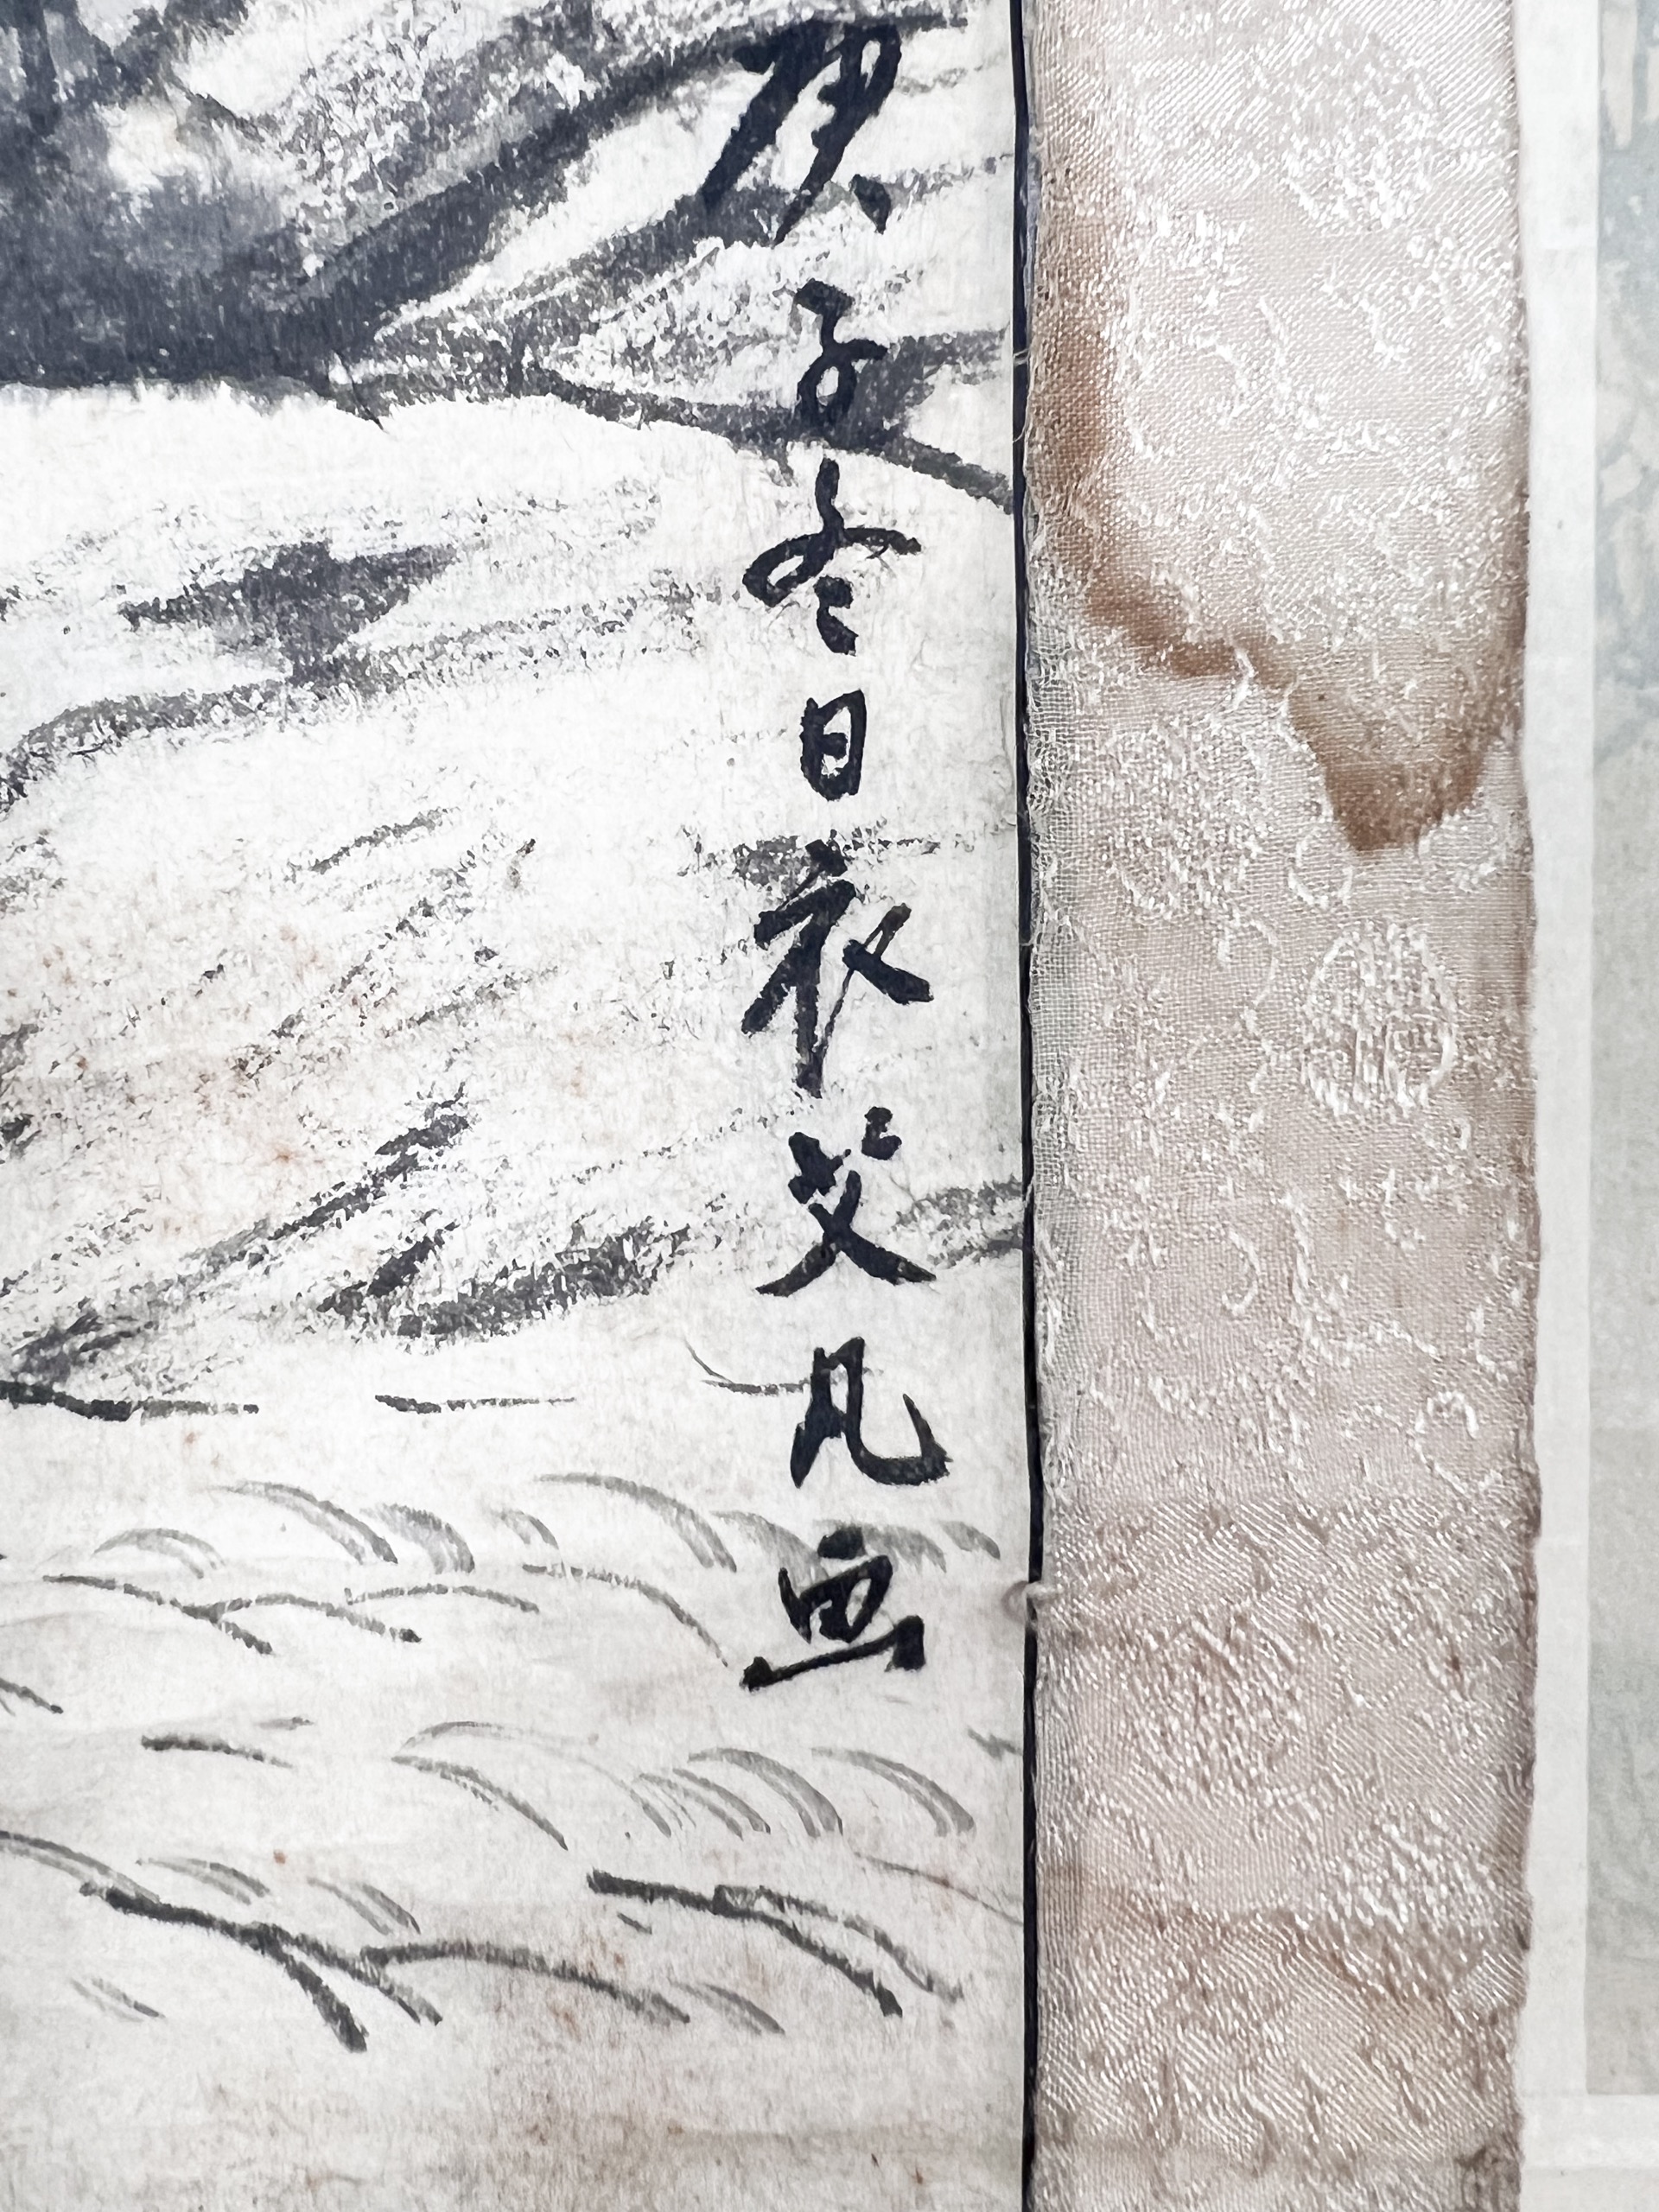 庚子冬日衣艾凡画